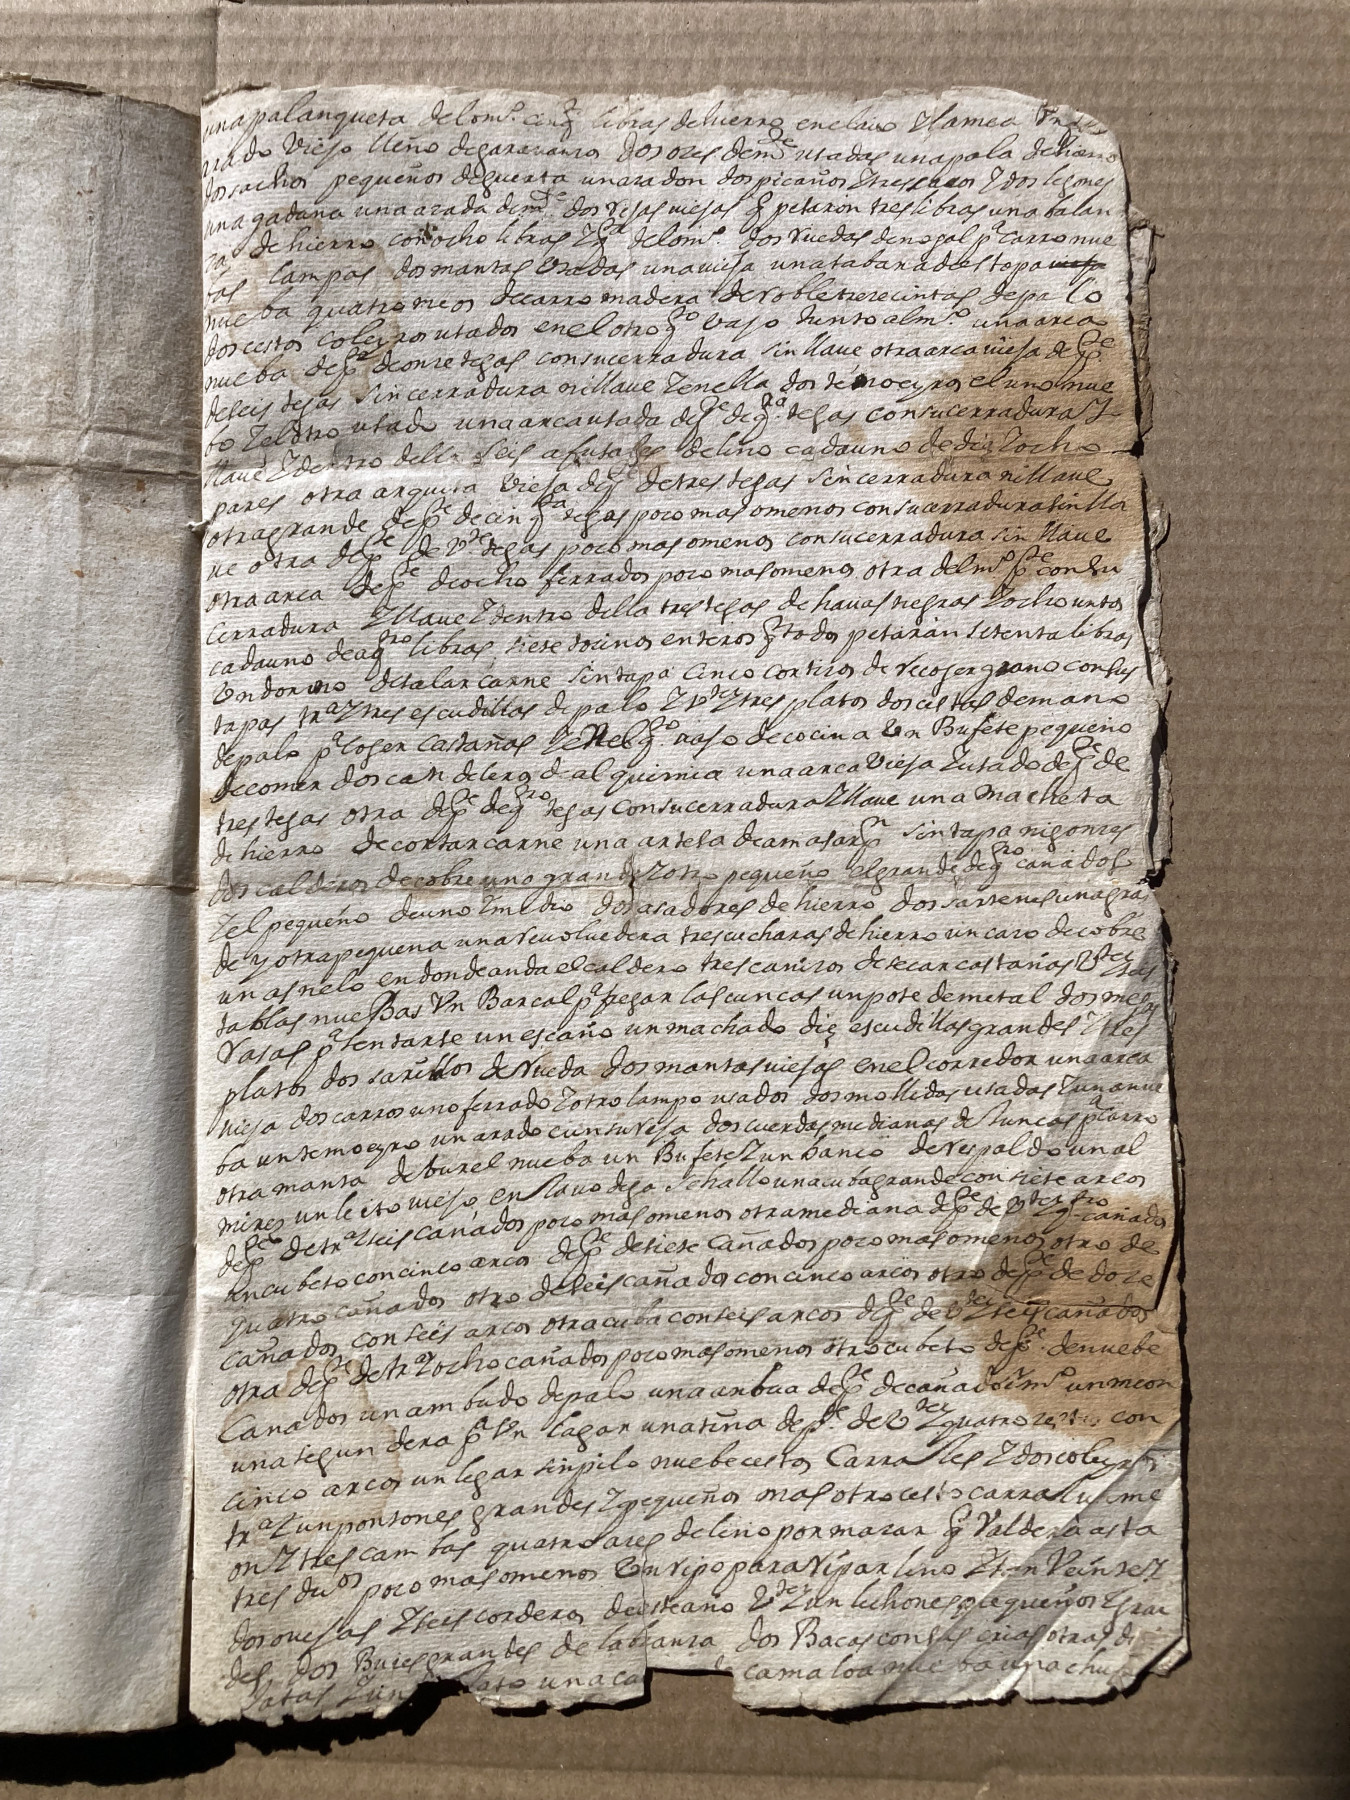 una palanqueta delomo. cinqta libras de hierro en claio Ylamea Un
rrado Viejo lleno degaravanzos dos oçes demte usadas unapala dehierro
dos sachos pequeños deguerta unaradon dos picaños Ztres Zdos legones
una gadana unaazada demte dos Rejas viejas q pesaron tres libras una balan
ça de hierro conocho libras delomo. dos Ruedas denogal pa carro nue
bas lampas dos mantas Usadas unavieja unatabanadestopa
nueba quatro meos decarro madera deRoble trezecintas depalo
dos cestos coleyros usados enelotro qto vajo Junto almo una arca
nueba depte deonze tegas consucerradura sin llave otraarcavieja depte
deseis tegas sin cerradura nillave Zenella dos temoeyros eluno nue
bo Zelotro usado una arcausada depte deqra tegas consucerradura Z
llave Zdentro della seis afusales delino cadauno de diez Zocho
pares otra arquita Vieja depte detres tegas sin cerradura nillave
otragrande depte decinqta tegas poco mas omenos consucerradurasinlla
ve otra depte de Vte tegas poco mas omenos consucerradura sin llave
otraarca depte deocho ferrados poco mas omenos otra delmo pte consu
cerradura Zllave Zdentro della tres tegas de havas negras Zocho untos
cadauno deaqtro libras siete tocinos enteros qtodos pesaran setenta libras
Un dornio desalar carne sintapa cinco cortizos de Recoger grano consus
tapas tra Ztres escudillas depalo ZVteZtres platos dos cestas demano
depalo pa Coger Castañas Zenelqto vajo decocina Un Bufete pequeño
decomer dos candeleros dealquimia una arca Vieja Zusado depte de
tres tegas otra depte deqtro tegas consucerradura Zllave una Macheta
de hierro decortar carne una artesa deamasarpn sin tapa nigonzes
dos calderos decobre uno grande Zotro pequeño elgrande deqtro cañados
Zel pequeño deuno Zmedio dos asadores de hierro dos sartenes unagran
de y otrapequena unaRevolvedera tres cucharas dehierro un cazo decobre
un asnelo endondeanda elcaldero tres canizos desecar castañas Vte Ztres
tablas nuebas Un Barcal pa fregar las cuncas un pote demetal dos mesas
Rasas pa sentarse un escaño un machado diez escudillas grandes Ztres
platos dos sarillos deRueda dos mantas viejas enel corredor una arca
vieja dos carros uno ferrado Zotro lampo usados dos mollidas usadas Zuna nue
ba un temoeyro un arado consu Reja dos cuerdas medianas de Juncas pa carro
otra manta deburel nueba un Bufete Zun banco deRespaldo un al
mirez un leito viejo en bodega sehallo una cuba grande con siete arcos
depte detraZseis cañados poco mas omenos otra mediana depte deVteZqtro cañados
uncubeto con cinco arcos depte desiete Cañados poco mas omenos otro de
quatro cañados otro deseis cañados concinco arcos otro depte de doze
cañados con seis arcos otracuba conseis arcos depte deVteZseis cañados
otra depte detraZocho cañados poco mas omenos otro cubeto depte. denuebe
Canados un ambudo depalo una anbua depte decañadoZmo un meon
una segundera pa Un lagar una tina depte. deVteZquatro con
cinco arcos un lagar sin pilo nuebe cestos Carrales Zdos coleyros
traZun pontones grandes Zpequeños mas otro cesto carral
on Ztres cambas quatro ares delino por mazar q Valdera asta
tres duos poco mas omenos Un ripo para Ripar lino Zten VeinteZ
dos ovejas Zseis corderos de esteaño VteZun lichones pequeños Zgran
des dos Bues grandes de labranza dos Bacas consus crias otras dos
Jatas Zun Jato una ca camaloa nueba una